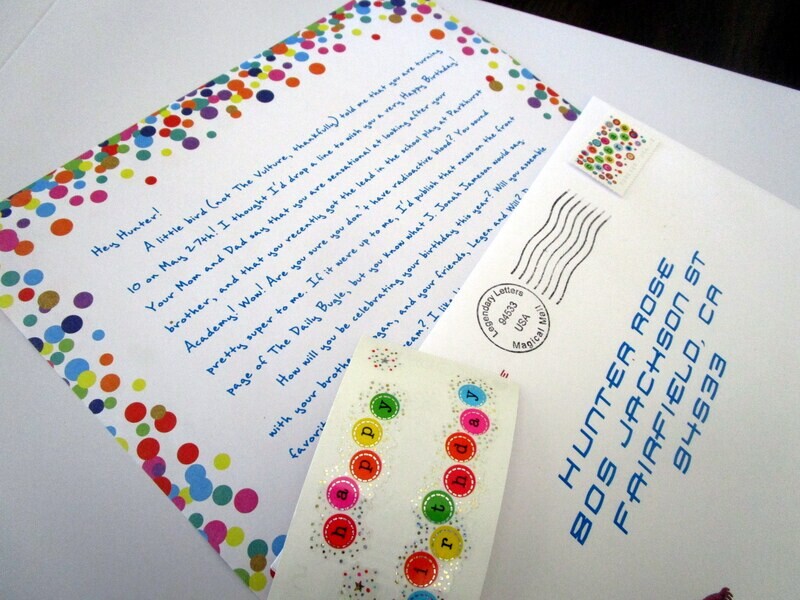 Hey Hunter!
A little bird (not The Vulture, thankfully) told me that you are turning
10 on May 27th! I thought I'd drop a line to wish you a very Happy Birthday!
Your Mom and Dad say that you are sensational at looking after your
brother, and that you recently got the lead in the school play at Parkhurst
Academy! Wow! Are you sure you don't have radioactive blood? You sound
pretty super to me. If it were up to me, I'd publish that news on the front
page of The Daily Bugle, but you know what J. Jonah Jameson would say
How will you be celebrating your birthday this year? Will you assemble
with your brother, and your friends, Legen and Will?
favorit
Legendary Letters
94533
USA
Magical Mail!
HUNTER ROSE
805 JACKSON ST
FAIRFIELD, CA
94533
happy
birthday